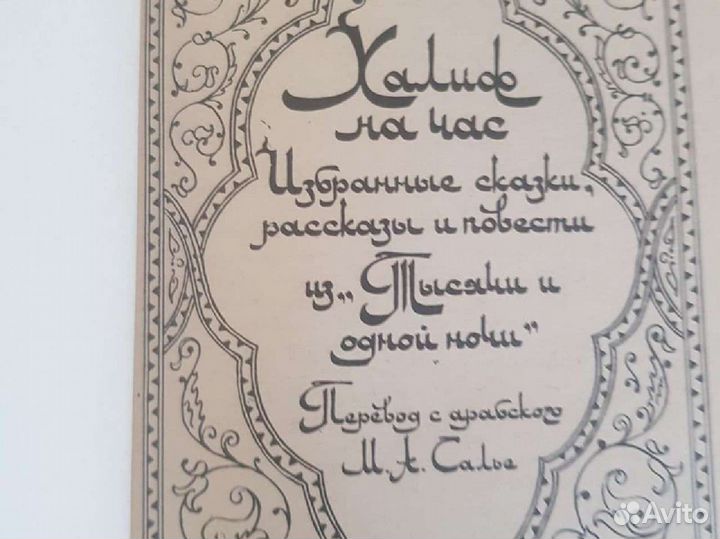 Халиф
на час
Избранные сказки,
рассказы и повести
из „Тысячи и
одной ночи“
Перевод с арабского
М. А. Салье
Avito